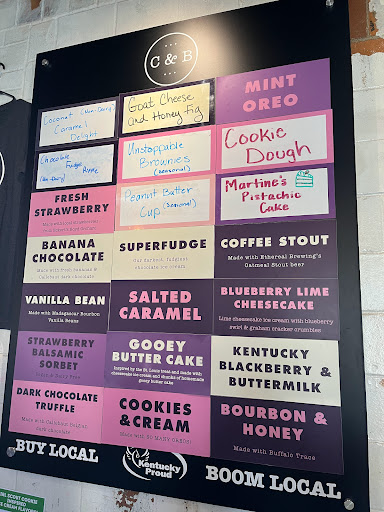 C & B
Coconut (Non-Dairy)
Caramel
Delight
Goat Cheese
and Honey Fig
MINT
OREO
Chocolate
Fudge
(Non-Dairy)
Unstoppable
Brownies
(seasonal)
Cookie
Dough
FRESH
STRAWBERRY
Peanut Butter
Cup (seasonal)
Martine's
Pistachio
Cake
BANANA
CHOCOLATE
Made with fresh bananas &
Callebaut dark chocolate
SUPERFUDGE
Our darkest, fudgiest
chocolate ice cream
COFFEE STOUT
Made with Ethereal Brewing's
Oatmeal Stout beer
VANILLA BEAN
Made w. Madagascar Bourbon
Vanilla Beans
SALTED
CARAMEL
BLUEBERRY LIME
CHEESECAKE
Lime cheesecake ice cream with blueberry
swirl & graham cracker crumbles
STRAWBERRY
BALSAMIC
SORBET
GOOEY
BUTTER CAKE
Inspired by the St. Louis treat and made with
cheesecake ice cream and chunks of homemade
gooey butter cake
KENTUCKY
BLACKBERRY &
BUTTERMILK
DARK CHOCOLATE
TRUFFLE
Made with Callebaut Belgian
dark chocolate
COOKIES
& CREAM
Made with SO MANY OREOS!
BOURBON &
HONEY
Made with Buffalo Trace
BUY LOCAL
Kentucky
Proud
BOOM LOCAL
SCOUT COOKIE
INSPIRED
ICE CREAM FLAVORS